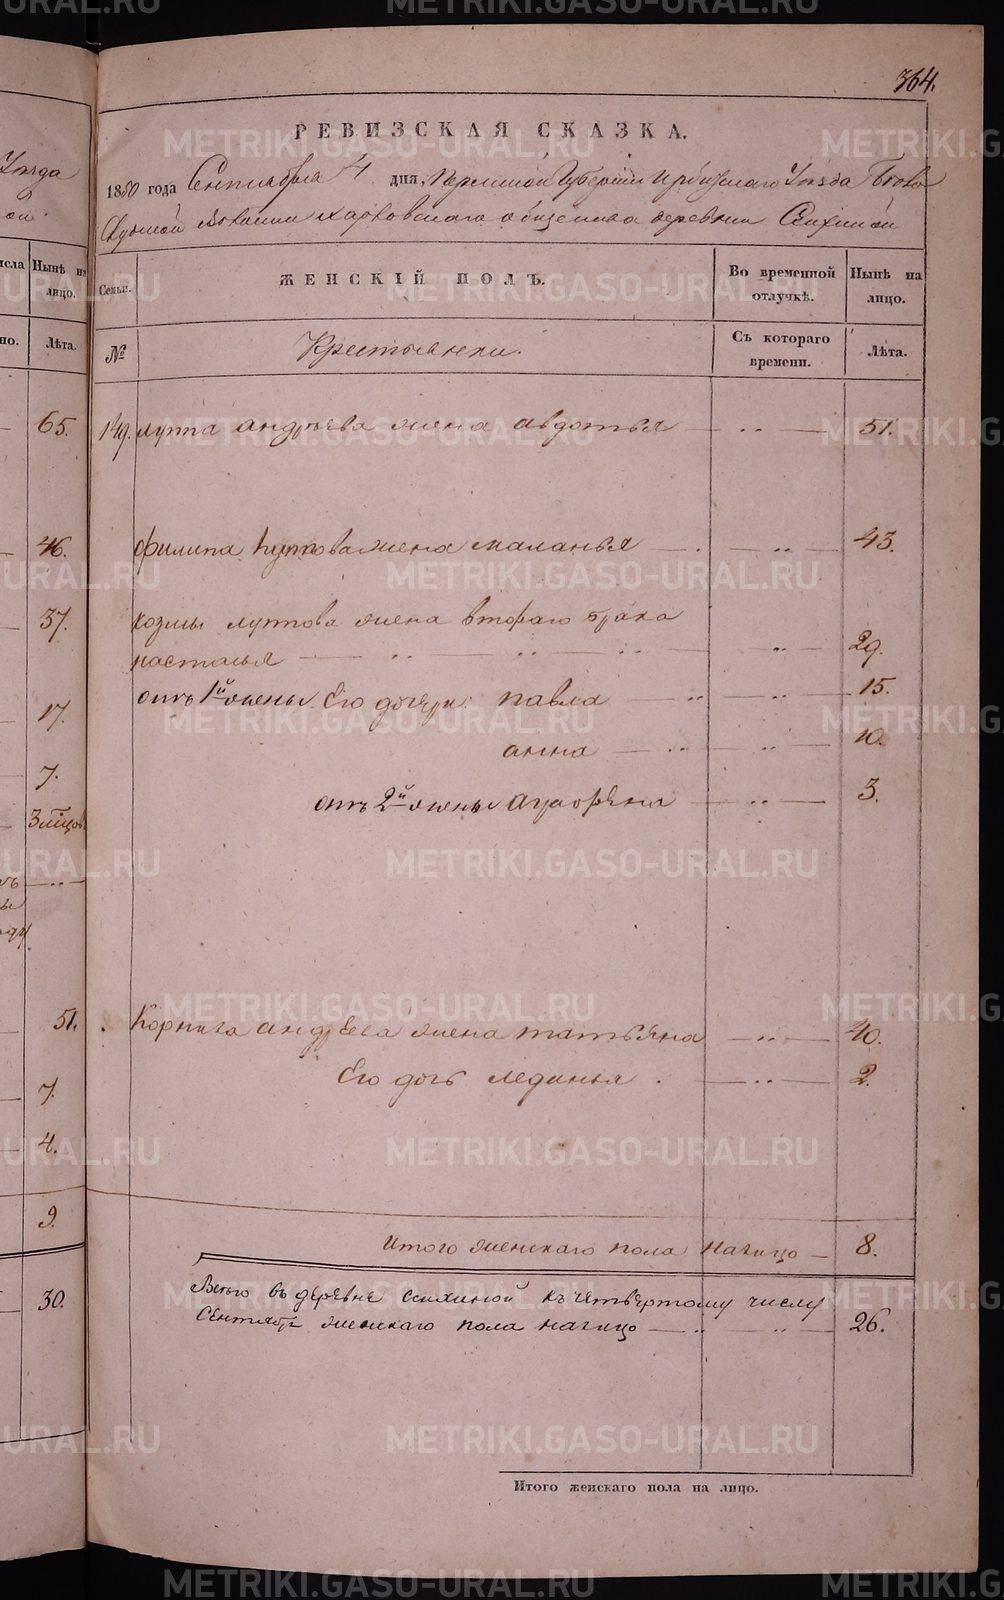 364.
РЕВИЗСКАЯ СКАЗКА.
1850 года Сентября 4 дня, Пермской Губернии Ирбитскаго Уѣзда
волости Харловскаго общества деревни
Семьи.
ЖЕНСКІЙ ПОЛЪ.
Во временной отлучкѣ.
Нынѣ на лицо.
№
Крестьянки.
Съ котораго времени.
Лѣта.
149. луппа андреева жена авдотья 51.
филипа луппова жена маланья 43.
козмы луппова жена втораго брака
настасья 29.
отъ 1й жены его дочери: павла 15.
анна 10.
отъ 2й жены аграфена 3.
Корнила андреева жена татьяна 40.
Его дочь лединья. 2.
Итого женскаго пола налицо 8.
Всего въ деревне к четвертому числу
Сентября женскаго пола налицо 26.
Итого женскаго пола на лицо.
Уѣзда
Нынѣ на
лицо.
Лѣта.
65.
46.
37.
17.
7.
51.
7.
4.
9.
30.
METRIKI.GASO-URAL.RU